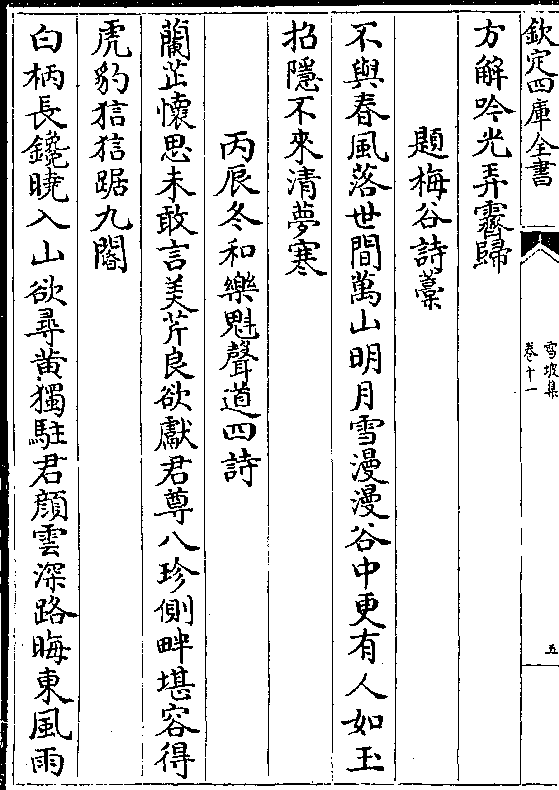 欽定四庫全書
雪坡集
卷十一
五
方解吟光弄霽歸
題梅谷詩藁
不與春風落世間萬山明月雪漫漫谷中更有人如玉
招隱不來清夢寒
丙辰冬和樂魁聲道四詩
蘭芷懷思未敢言美芹良欲獻君尊八珍側畔堪容得
虎豹狺狺踞九閽
白柄長鑱曉入山欲尋黄獨駐君顔雲深路晦東風雨